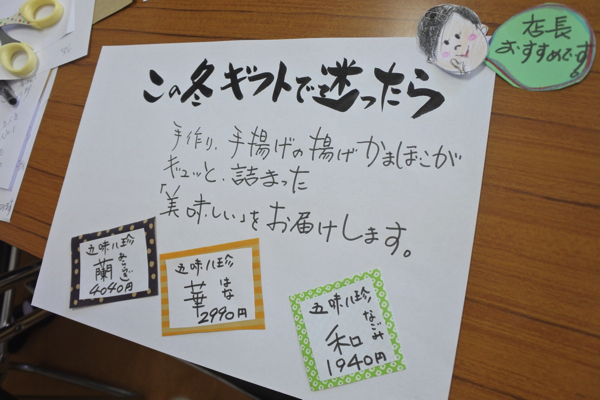 店長
おすすめです。
この冬ギフトで迷ったら
手作り、手揚げの揚げかまぼこが
ギュッと、詰まった
「美味しい」をお届けします。
五味八珍
蘭
4040円
五味八珍
華 はな
2990円
五味八珍
和 なごみ
1940円